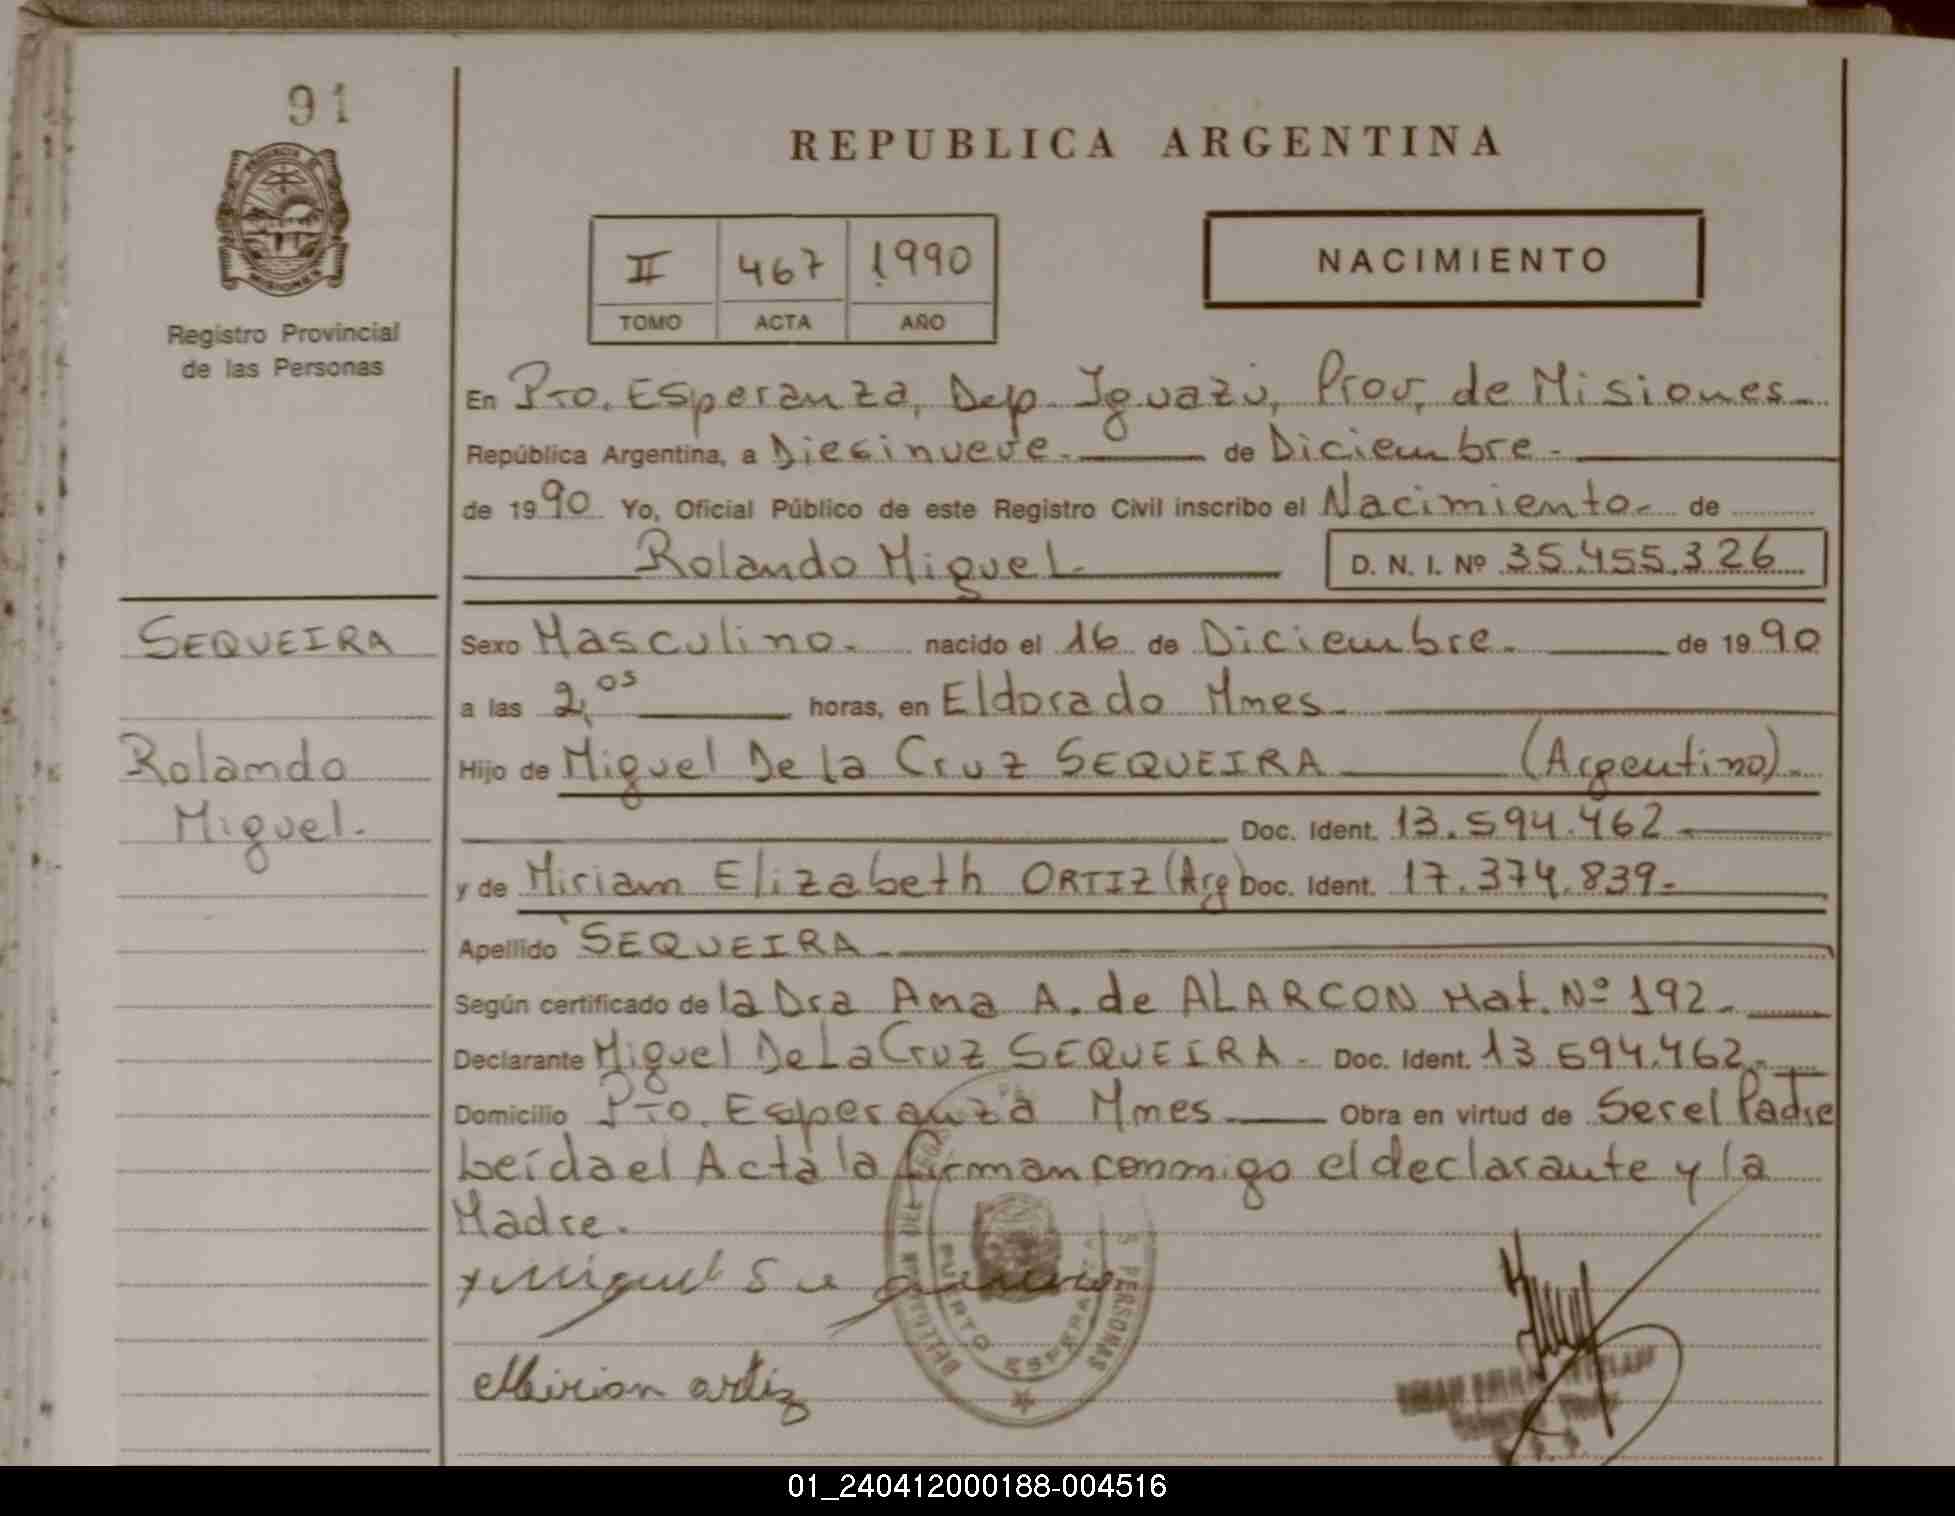 91
PROVINCIA DE
MISIONES
Registro Provincial
de las Personas
REPUBLICA ARGENTINA
II 467 1990
TOMO ACTA AÑO
NACIMIENTO
En Pto. Esperanza, Dep. Iguazú, Prov. de Misiones
República Argentina, a Diecinueve. de Diciembre.
de 1990 Yo, Oficial Público de este Registro Civil inscribo el Nacimiento. de
Rolando Miguel. D. N. I. Nº 35.455.326
SEQUEIRA
Rolando
Miguel.
Sexo Masculino. nacido el 16 de Diciembre. de 1990
a las 2,05 horas, en Eldorado Mnes.
Hijo de Miguel De la Cruz SEQUEIRA (Argentino).
Doc. Ident. 13.594.462
y de Miriam Elizabeth ORTIZ (Arg) Doc. Ident. 17.374.839.
Apellido SEQUEIRA
Según certificado de la Dra Ana A. de ALARCON Mat. Nº 192.
Declarante Miguel De La Cruz SEQUEIRA. Doc. Ident. 13.594.462.
Domicilio Pto. Esperanza Mnes Obra en virtud de Ser el Padre
Leída el Acta la firman conmigo el declarante y la
Madre.
Miguel
Mirian ortiz
PERSONAS
PUERTO ESPERANZA
01_240412000188-004516